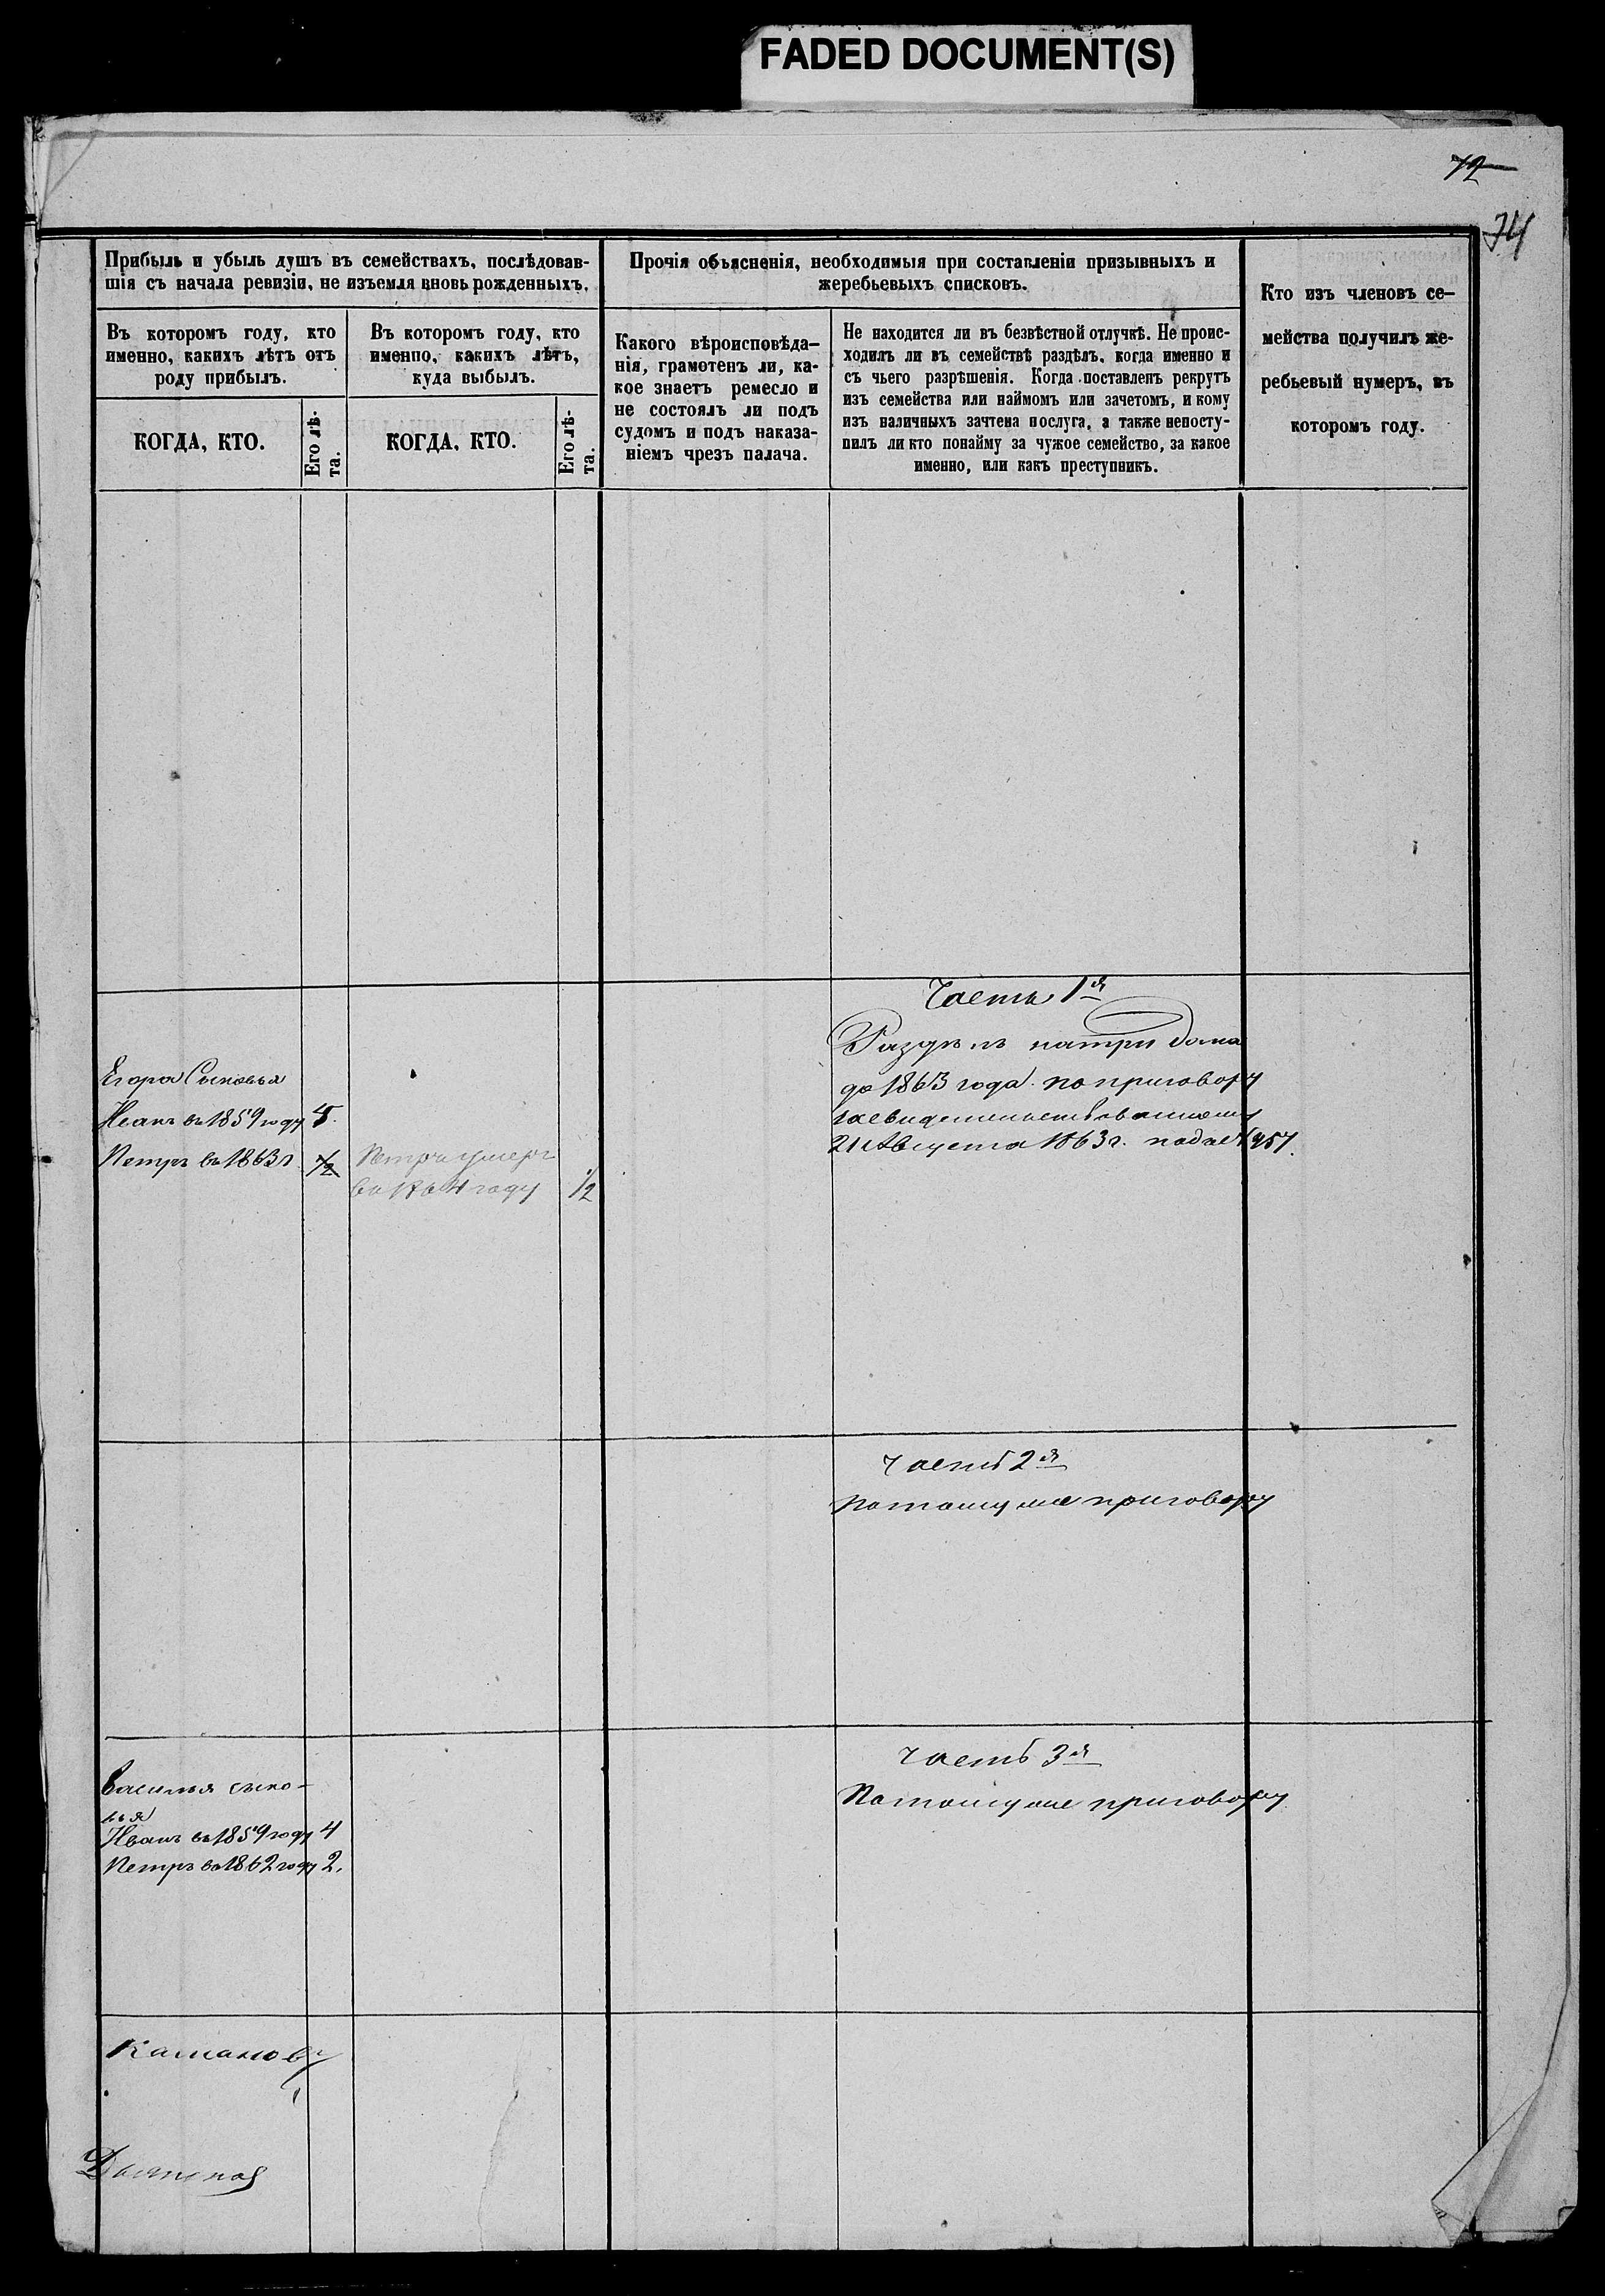 FADED DOCUMENT(S)
72
74
Прибыль и убыль душъ въ семействахъ, послѣдовав-
шія съ начала ревизіи, не изъемля вновь рожденныхъ.
Въ которомъ году, кто
именно, какихъ лѣтъ отъ
роду прибылъ.
КОГДА, КТО.
Его лѣ-
та.
Въ которомъ году, кто
именно, какихъ лѣтъ,
куда выбылъ.
КОГДА, КТО.
Его лѣ-
та.
Прочія объясненія, необходимыя при составленіи призывныхъ и
жеребьевыхъ списковъ.
Какого вѣроисповѣда-
нія, грамотенъ ли, ка-
кое знаетъ ремесло и
не состоялъ ли подъ
судомъ и подъ наказа-
ніемъ чрезъ палача.
Не находится ли въ безвѣстной отлучкѣ. Не проис-
ходилъ ли въ семействѣ раздѣлъ, когда именно и
съ чьего разрѣшенія. Когда поставленъ рекрутъ
изъ семейства или наймомъ или зачетомъ, и кому
изъ наличныхъ зачтена послуга, а также непосту-
пилъ ли кто понайму за чужое семейство, за какое
именно, или какъ преступникъ.
Кто изъ членовъ се-
мейства получилъ же-
ребьевый нумеръ, въ
которомъ году.
Часть 1я
Раздѣлъ натри дома
до 1863 года по приговору
засвидетельствованному
21 Августа 1863 г. под № 957.
Егора Сыновья
Иванъ въ 1859 году 5.
Петръ въ 1863 г 1/2
Петръ умеръ
въ 1864 году 1/2
Часть 2я
Потомуже приговору
Часть 3я
Потомуже приговору
Василья сыно-
вья
Иванъ въ 1859 году 4
Петръ въ 1862 году 2.